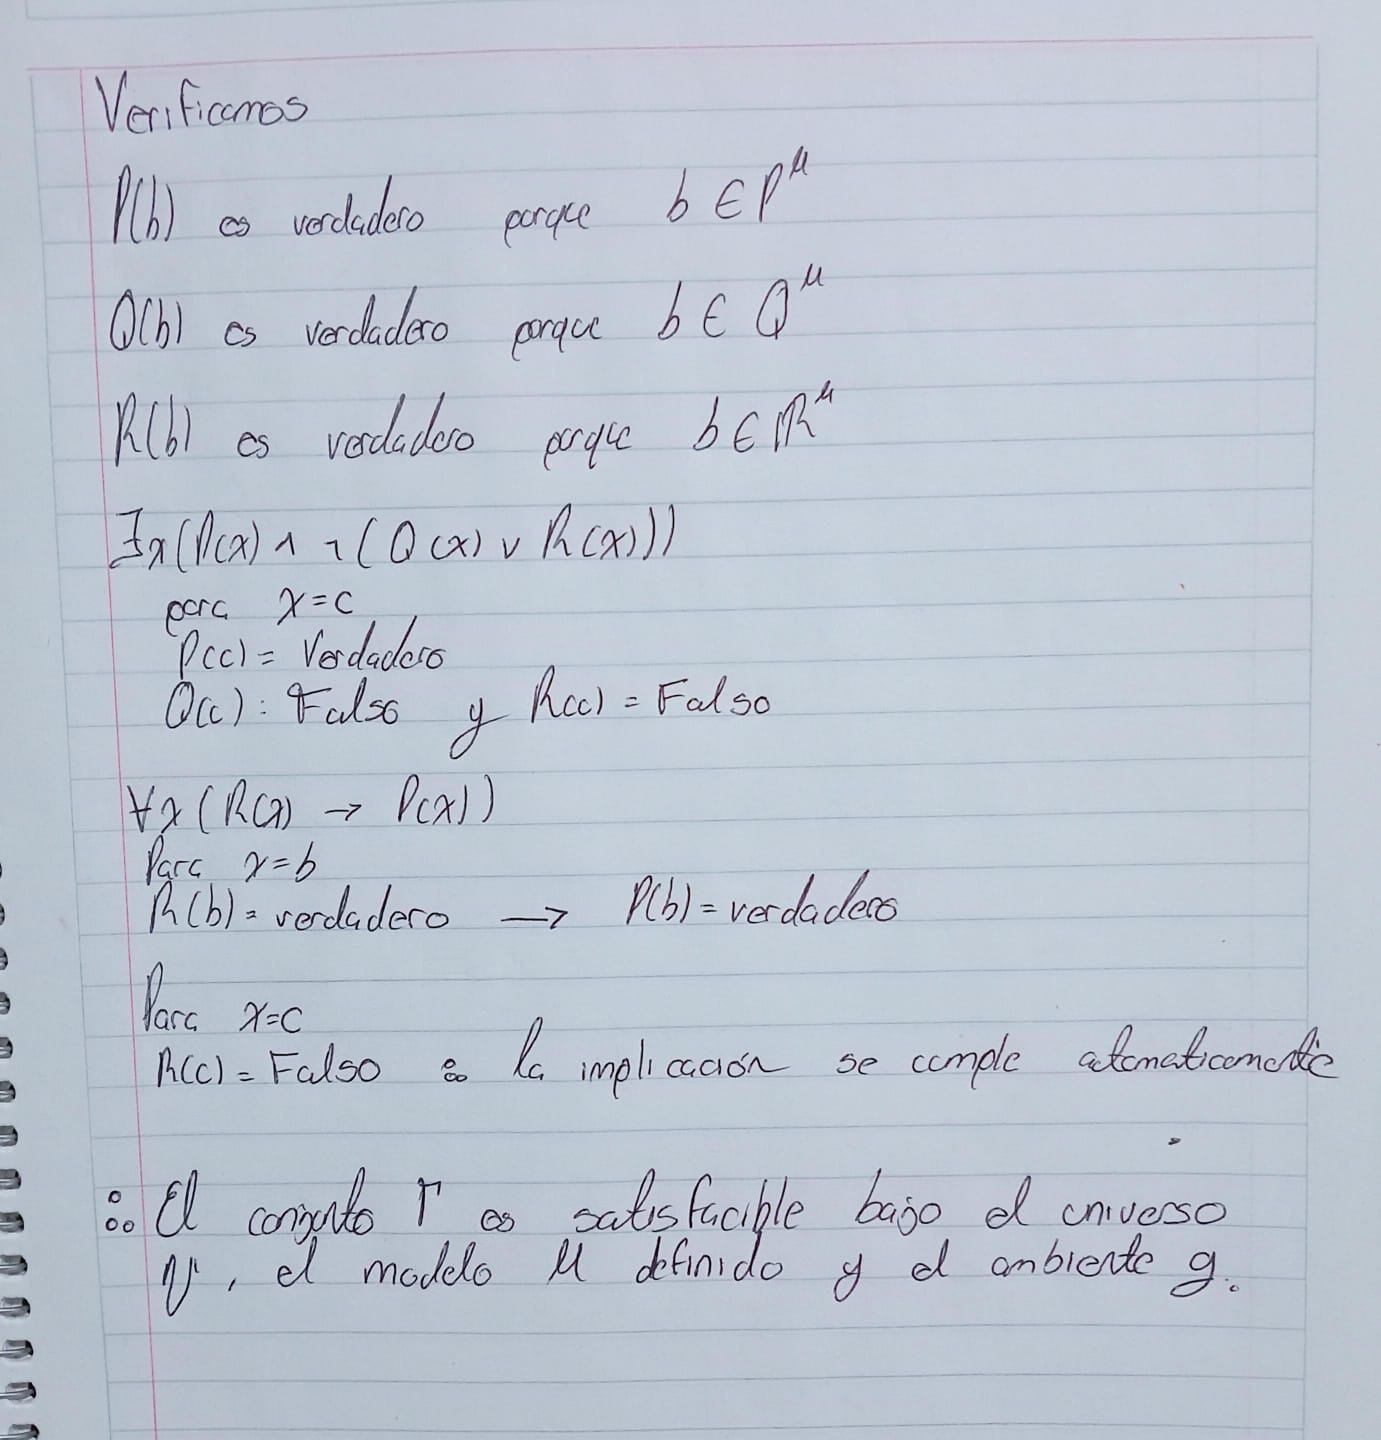 Verificamos
P(b) es verdadero porque b ∈ P^μ
Q(b) es verdadero porque b ∈ Q^μ
R(b) es verdadero porque b ∈ R^μ
∃x(P(x) ∧ ¬(Q(x) ∨ R(x)))
para x=c
P(c) = Verdadero
Q(c): Falso y R(c) = Falso
∀x(R(x) → P(x))
Para x=b
R(b) = verdadero → P(b) = verdadero
Para x=c
R(c) = Falso ∴ la implicación se cumple automaticamente
∴ El conjunto Γ es satisfacible bajo el universo
U, el modelo μ definido y el ambiente g.